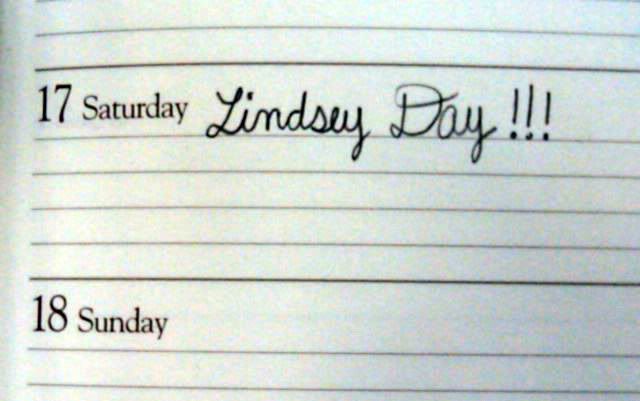 17 Saturday Lindsey Day !!!
18 Sunday